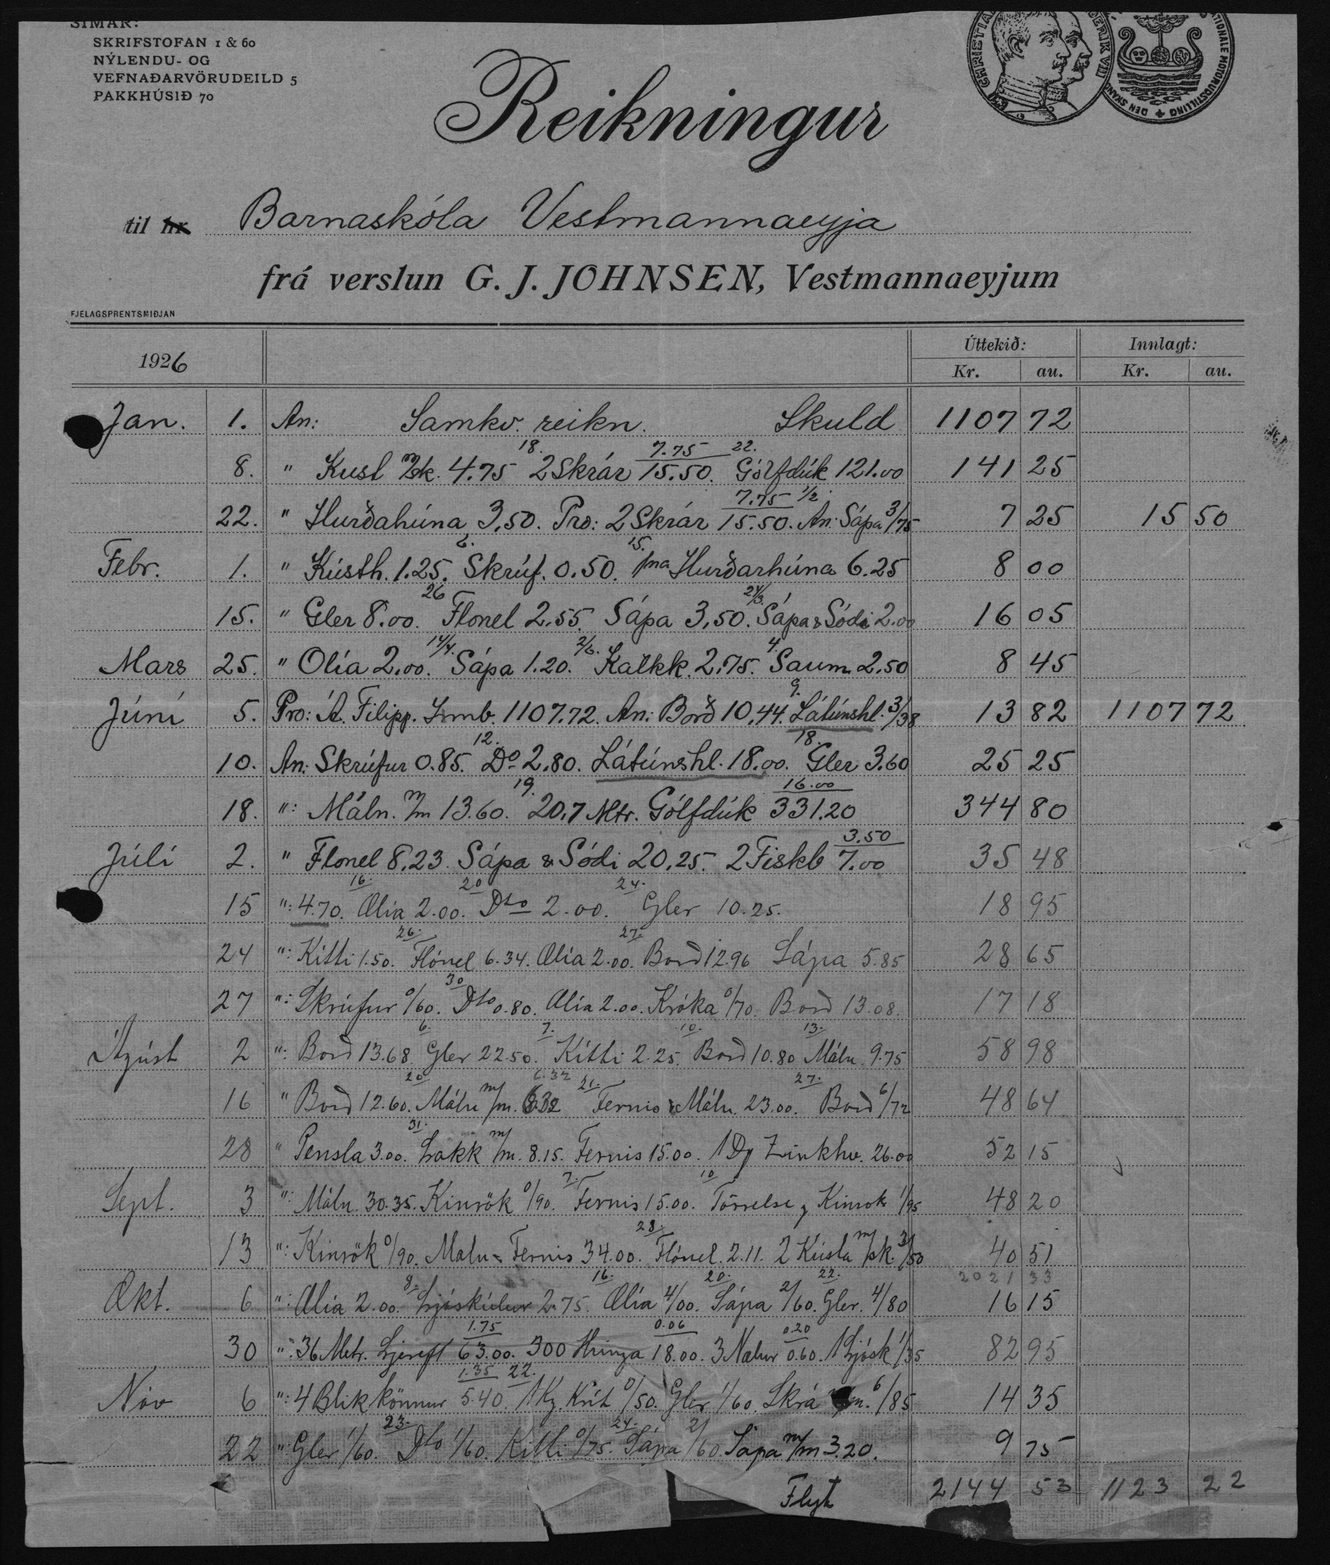 SÍMAR:
SKRIFSTOFAN 1 & 60
NÝLENDU- OG
VEFNAÐARVÖRUDEILD 5
PAKKHÚSIÐ 70
Reikningur
til hr. Barnaskóla Vestmannaeyja
frá verslun G. J. JOHNSEN, Vestmannaeyjum
FJELAGSPRENTSMIÐJAN
1926 Úttekið: Innlagt:
Kr. au. Kr. au.
Jan. 1. An: Samkv. reikn. Skuld 1107 72
18. 7.75 22.
8. " Kust m/sk. 4.75 2 Skrár 15.50. Gólfdúk 121.00 141 25
7.75 1/2
22. " Hurðahúna 3,50. Pro: 2 Skrár 15.50. An: Sápa 3/75 7 25 15 50
6. 15.
Febr. 1. " Kústh. 1.25. Skrúf. 0.50. Hurðarhúna 6.25 8 00
26 24/3
15. " Gler 8.00. Flonel 2.55. Sápa 3,50. Sápa & Sódi 2.00 16 05
14/4. 2/6. 4
Mars 25. " Olía 2.00. Sápa 1.20. Kalkk. 2.75. Saum. 2.50 8 45
9.
Júní 5. Pro: Á. Filipp. Innb. 1107.72. An: Borð 10,44. Látúnshl. 3/38 13 82 1107 72
12. 18.
10. An: Skrúfur 0.85. Do 2.80. Látúnshl. 18.00. Gler 3.60 25 25
19. 16.00
18. ": Máln. m/m 13.60. 20,7 Mtr. Gólfdúk 331.20 344 80
3.50
Júlí 2. " Flonel 8,23. Sápa & Sódi 20,25. 2 Fiskb 7.00 35 48
16. 20 24.
15 ": 4.70. Olía 2.00. Dto 2.00. Gler 10.25. 18 95
26. 27.
24 ": Kítti 1.50. Flónel 6.34. Olía 2.00. Borð 12.96 Sápa 5.85 28 65
30
27 ": Skrúfur 0/60. Dto 0.80. Olía 2.00. Króka 0/70. Borð 13.08. 17 18
6. 7. 10. 13.
Ágúst 2 ": Borð 13.68. Gler 22.50. Kítti 2.25. Borð 10.80 Máln. 9.75 58 98
20 6.32 21. 27.
16 " Borð 12.60. Máln m/m. 6.32 Fernis & Máln. 23.00. Borð 6/72 48 64
31.
28 " Pensla 3.00. Lakk m/m. 8.15. Fernis 15.00. 1 Dg Zinkhv. 26.00 52 15
7. 10
Sept. 3 ": Máln. 30.35. Kinrök 0/90. Fernis 15.00. Törrelse og Kinrok 1/95 48 20
28.
13 ": Kinrök 0/90. Maln & Fernis 34.00. Flónel. 2.11. 2 Kústa m/sk. 3/50 40 51
2021 33
8. 16. 20. 22.
Okt. 6 ": Olía 2.00. 2.75. Olía 4/00. Sápa 2/60. Gler. 4/80 16 15
1.75 0.06 0.20
30 ": 36 Metr. Ljereft 63.00. 300 Hringa 18.00. 3 Nalar 0.60. 1/35 82 95
1.35 22.
Nóv 6 ": 4 Blikkkönnur 5.40. 1 Kg. Krít 0/50. Gler 1/60. Skrá 6/85 14 35
23. 24. 2/
22 ": Gler 1/60. Dto 1/60. Kítti 0/75. Sápa 2/60. Sápa m/m 3.20. 9 75
Flyt 2144 53 1123 22